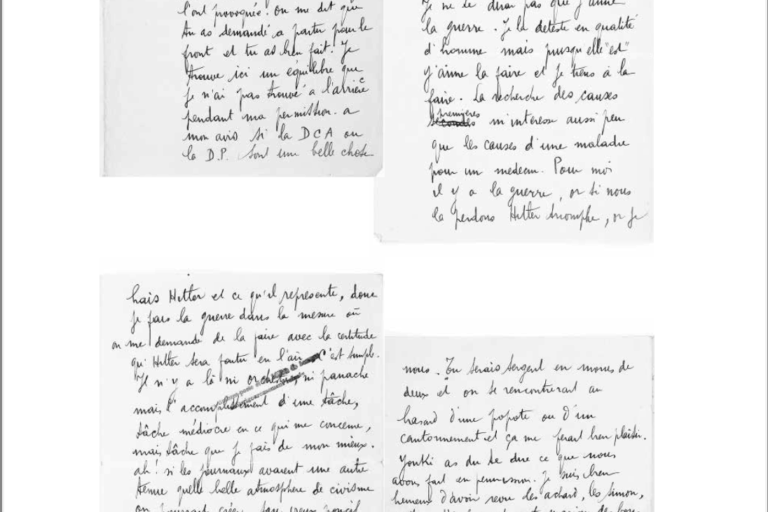 l'ont provoquée. On me dit que
tu as demandé a partir pour le
front et tu as bien fait. Je
trouve ici un équilibre que
je n'ai pas trouvé a l'arrière
pendant ma permission. a
mon avis si la DCA ou
la D.P. sont une belle chose
Je ne te dirai pas que j'aime
la guerre. Je la deteste en qualité
d'homme mais puisqu'elle "est"
j'aime la faire et je tiens à la
faire. La recherche des causes
premières
secondes m'interesse aussi peu
que les causes d'une maladie
pour un medecin. Pour moi
il y a la guerre, or si nous
la perdons Hitler triomphe, or je
hais Hitler et ce qu'il représente, donc
je fais la guerre dans la mesure où
on me demande de la faire avec la certitude
qu'Hitler sera foutu en l'air. C'est simple.
Je n'y a là ni ni panache
mais l'accomplissement d'une tâche,
tâche médiocre en ce qui me concerne,
mais tâche que je fais de mon mieux.
ah! si les journaux avaient une autre
tenue quelle belle atmosphère de civisme
on pourrait créer
nous. Tu serais sergent en moins de
deux et on se rencontrerait au
hasard d'une popote ou d'un
cantonnement et ça me ferait bien plaisir.
Youki as du te dire ce que nous
avons fait en permission. Je suis bien
heureux d'avoir revu les achard, les simon,